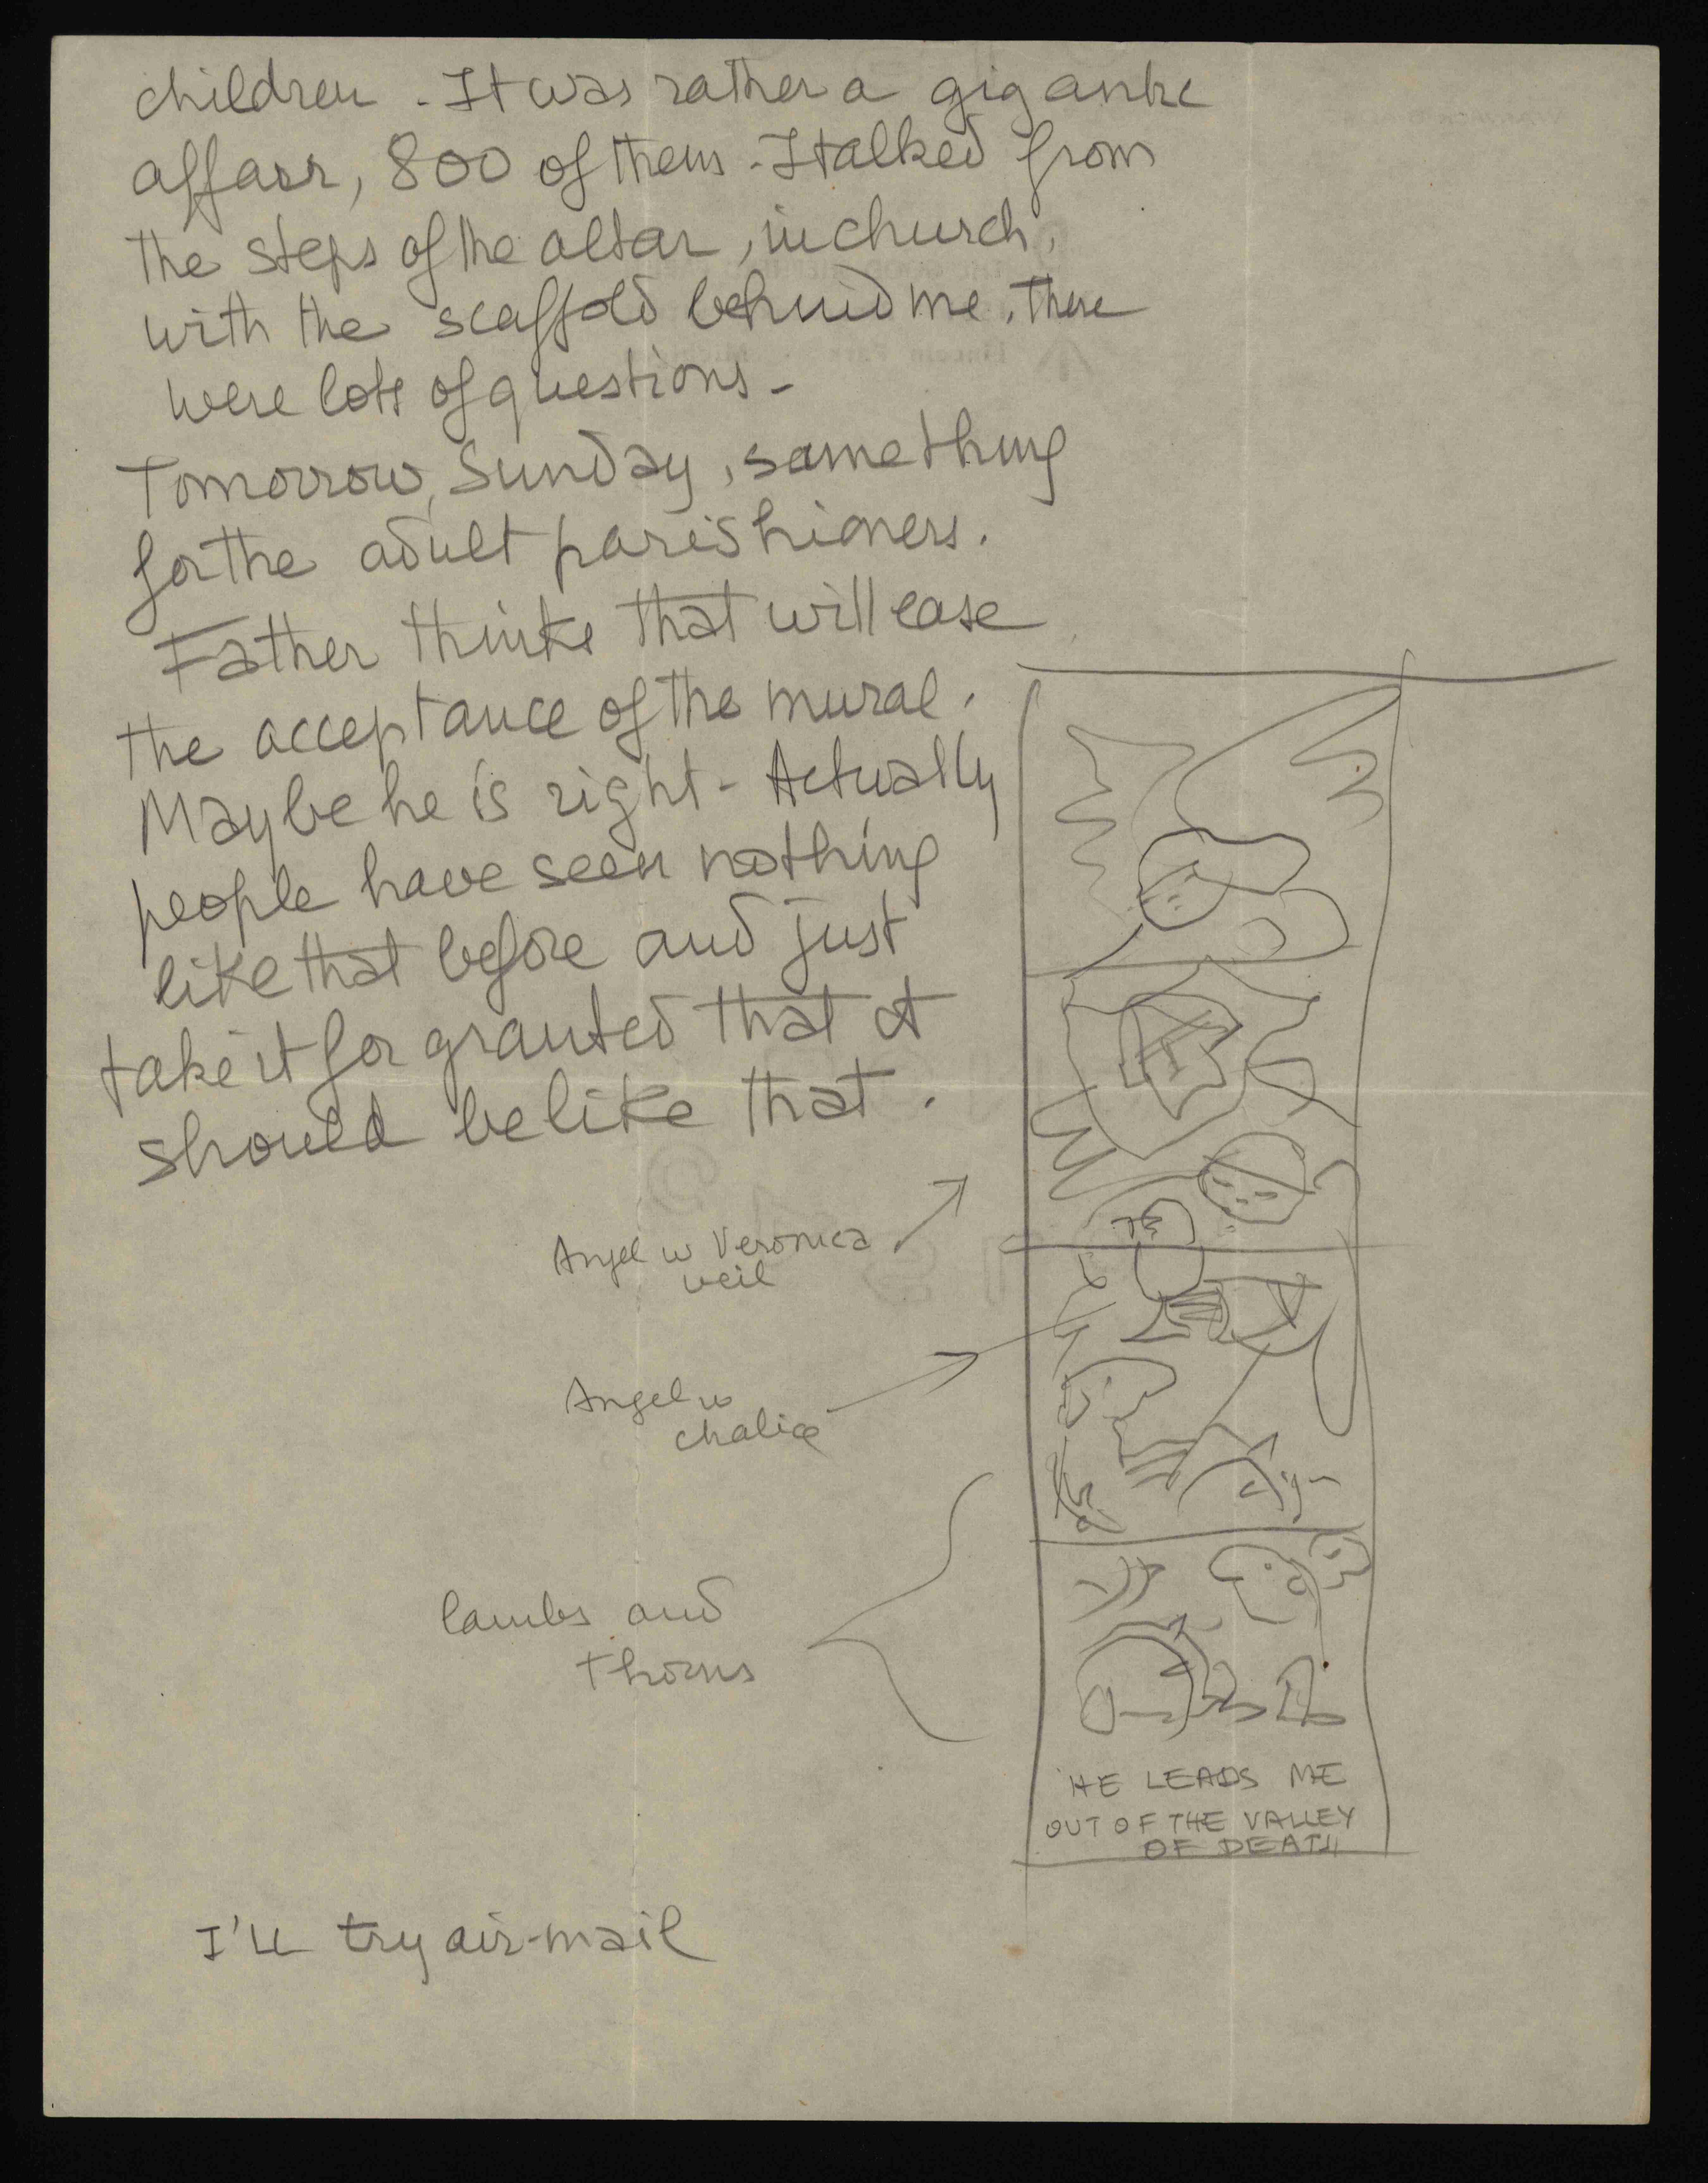 children - It was rather a gigantic
affair, 800 of them - I talked from
the steps of the altar, in church,
with the scaffold behind me. There
were lots of questions -
Tomorrow, Sunday, something
for the adult parishioners.
Father thinks that will ease
the acceptance of the mural.
Maybe he is right - Actually
people have seen nothing
like that before and just
take it for granted that it
should be like that.
Angel w Veronica
veil
Angel w
chalice
lambs and
thorns
HE LEADS ME
OUT OF THE VALLEY
OF DEATH
I'll try air-mail